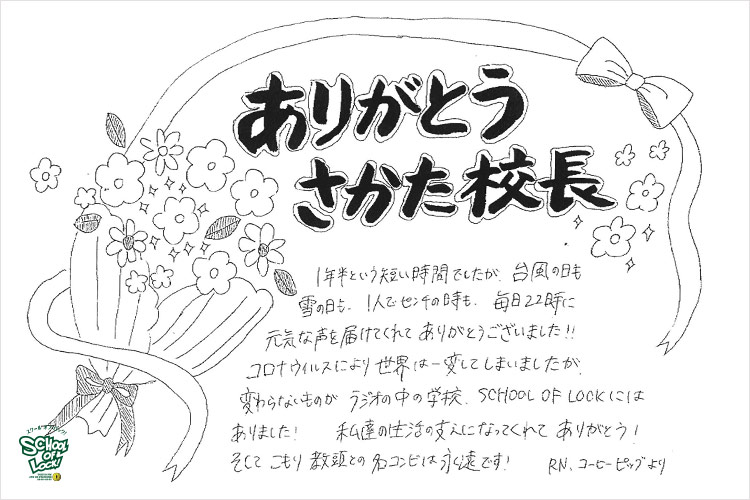 ありがとう
さかた校長
1年半という短い時間でしたが、台風の日も
雪の日も、1人でセンチの時も、毎日22時に
元気な声を届けてくれて ありがとうございました!!
コロナウイルスにより世界は一変してしまいましたが、
変わらないものが ラジオの中の学校、SCHOOL OF LOCKには
ありました! 私達の生活の支えになってくれて ありがとう!
そして こもり教頭との名コンビは永遠です! RN、コーヒーピッグより
SCHOOL OF LOCK!